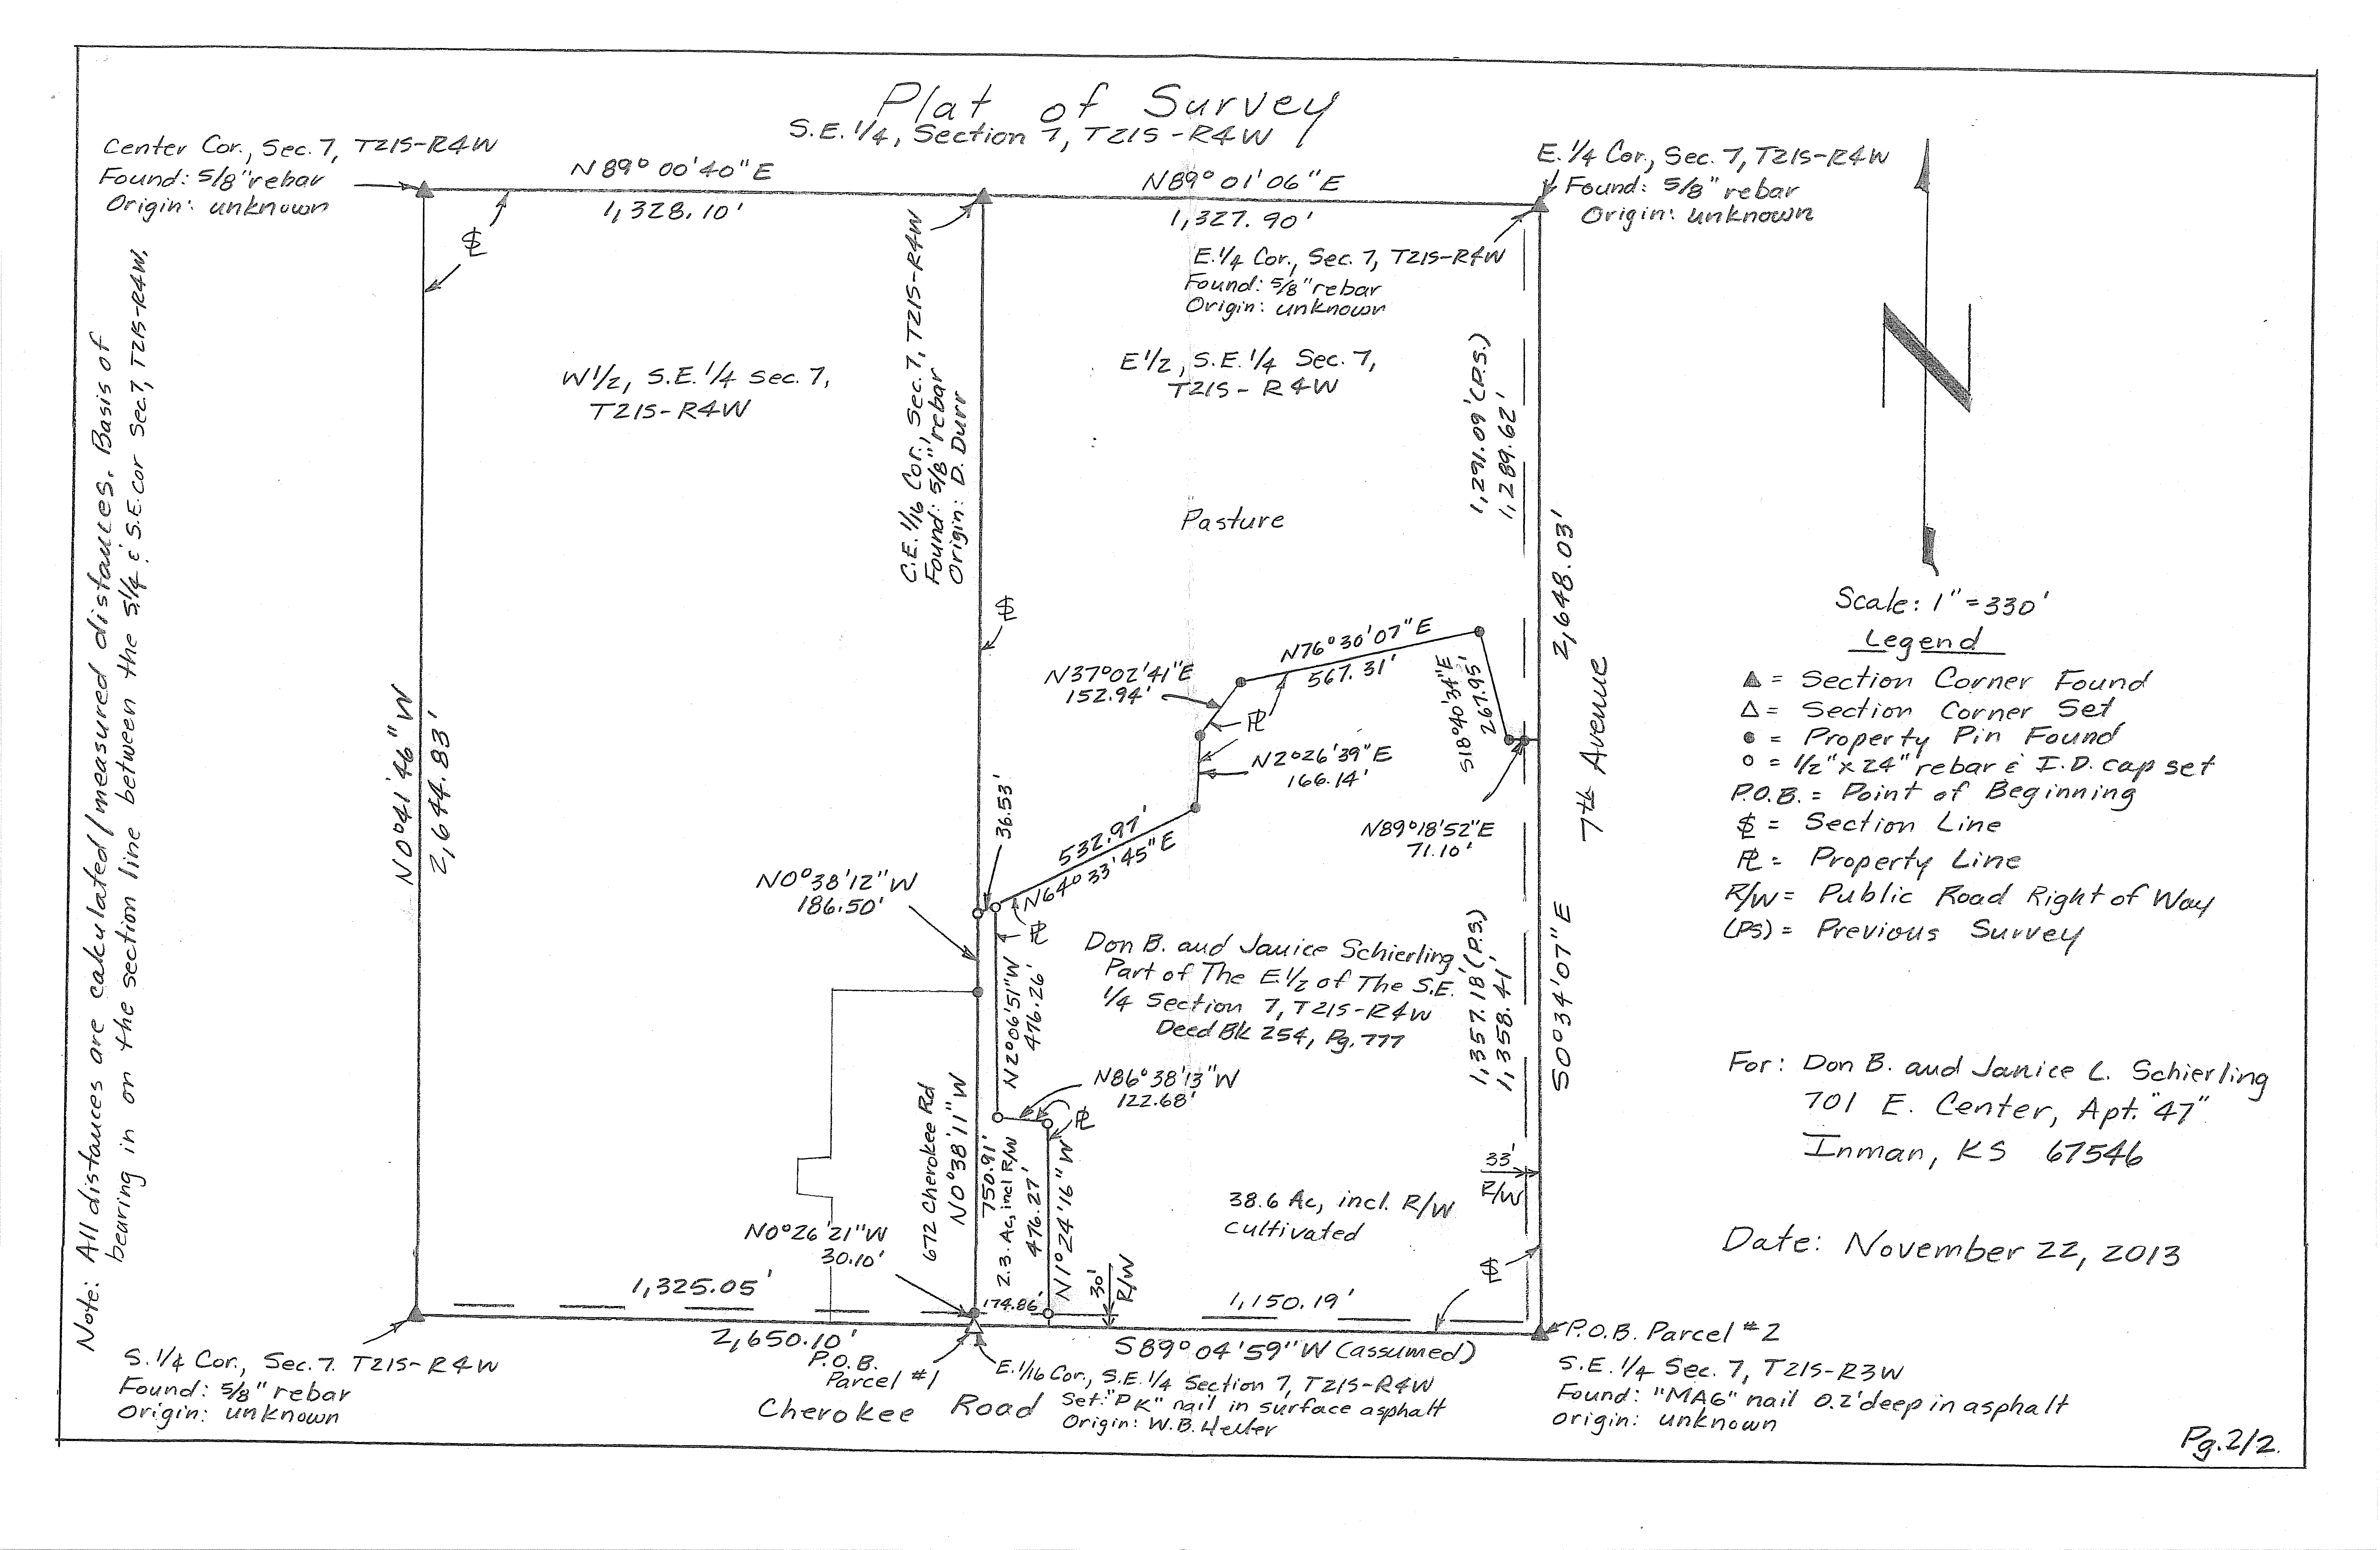 Plat of Survey
S.E. 1/4, Section 7, T21S-R4W
Center Cor., Sec. 7, T21S-R4W
Found: 5/8" rebar
Origin: unknown
N 89° 00' 40" E
1,328.10'
N89° 01' 06" E
1,327.90'
E. 1/4 Cor., Sec. 7, T21S-R4W
Found: 5/8" rebar
Origin: unknown
E. 1/4 Cor., Sec. 7, T21S-R4W
Found: 5/8" rebar
Origin: unknown
Note: All distances are calculated/measured distances. Basis of
bearing in on the section line between the S1/4 & S.E. cor Sec. 7, T21S-R4W.
W 1/2, S.E. 1/4 Sec. 7,
T21S-R4W
C.E. 1/16 Cor., Sec. 7, T21S-R4W
Found: 5/8" rebar
Origin: D. Durr
E 1/2, S.E. 1/4 Sec. 7,
T21S-R4W
Pasture
1,291.09' (P.S.)
1,289.62'
2,648.03'
7th Avenue
S0°34'07"E
N
Scale: 1" = 330'
Legend
▲ = Section Corner Found
△ = Section Corner Set
● = Property Pin Found
○ = 1/2" x 24" rebar & I.D. cap set
P.O.B. = Point of Beginning
SL = Section Line
PL = Property Line
R/W = Public Road Right of Way
(PS) = Previous Survey
N0°41'46"W
2,644.83'
N76°30'07"E
567.31'
N37°02'41"E
152.94'
PL
S18°40'34"E
267.95'
N2°26'39"E
166.14'
N89°18'52"E
71.10'
36.53'
532.97'
N64°33'45"E
N0°38'12"W
186.50'
PL
Don B. and Janice Schierling
Part of The E. 1/2 of The S.E.
1/4 Section 7, T21S-R4W
Deed Bk 254, Pg. 777
1,357.18' (P.S.)
1,358.41'
N2°06'51"W
476.26'
N86°38'13"W
122.68'
PL
672 Cherokee Rd
N0°38'11"W
750.91'
2.3 Ac, incl R/W
476.27'
N1°24'16"W
38.6 Ac, incl. R/W
Cultivated
33'
R/W
30'
R/W
SL
For: Don B. and Janice L. Schierling
701 E. Center, Apt. "47"
Inman, KS 67546
Date: November 22, 2013
N0°26'21"W
30.10'
174.86'
1,325.05'
1,150.19'
2,650.10'
S89°04'59"W (assumed)
P.O.B.
Parcel #1
P.O.B. Parcel #2
S. 1/4 Cor., Sec. 7. T21S-R4W
Found: 5/8" rebar
Origin: unknown
E. 1/16 Cor., S.E. 1/4 Section 7, T21S-R4W
Set: "PK" nail in surface asphalt
Origin: W.B. Heller
Cherokee Road
S.E. 1/4 Sec. 7, T21S-R3W
Found: "MAG" nail 0.2' deep in asphalt
origin: unknown
Pg. 2/2.